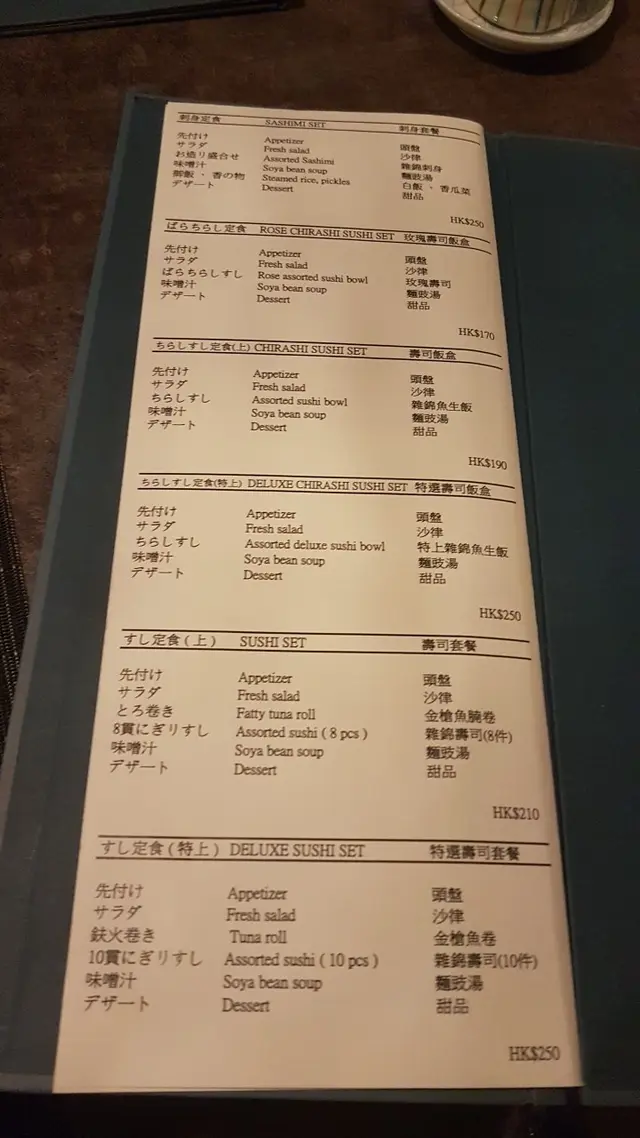 刺身定食 SASHIMI SET 刺身套餐
先付け Appetizer 頭盤
サラダ Fresh salad 沙律
お造り盛合せ Assorted Sashimi 雜錦刺身
味噌汁 Soya bean soup 麵豉湯
御飯・香の物 Steamed rice, pickles 白飯、香瓜菜
デザート Dessert 甜品
HK$250
ばらちらし定食 ROSE CHIRASHI SUSHI SET 玫瑰壽司飯盒
先付け Appetizer 頭盤
サラダ Fresh salad 沙律
ばらちらしすし Rose assorted sushi bowl 玫瑰壽司
味噌汁 Soya bean soup 麵豉湯
デザート Dessert 甜品
HK$170
ちらしすし定食(上) CHIRASHI SUSHI SET 壽司飯盒
先付け Appetizer 頭盤
サラダ Fresh salad 沙律
ちらしすし Assorted sushi bowl 雜錦魚生飯
味噌汁 Soya bean soup 麵豉湯
デザート Dessert 甜品
HK$190
ちらしすし定食(特上) DELUXE CHIRASHI SUSHI SET 特選壽司飯盒
先付け Appetizer 頭盤
サラダ Fresh salad 沙律
ちらしすし Assorted deluxe sushi bowl 特上雜錦魚生飯
味噌汁 Soya bean soup 麵豉湯
デザート Dessert 甜品
HK$250
すし定食(上) SUSHI SET 壽司套餐
先付け Appetizer 頭盤
サラダ Fresh salad 沙律
とろ巻き Fatty tuna roll 金槍魚腩卷
8貫にぎりすし Assorted sushi ( 8 pcs ) 雜錦壽司(8件)
味噌汁 Soya bean soup 麵豉湯
デザート Dessert 甜品
HK$210
すし定食(特上) DELUXE SUSHI SET 特選壽司套餐
先付け Appetizer 頭盤
サラダ Fresh salad 沙律
鉄火巻き Tuna roll 金槍魚卷
10貫にぎりすし Assorted sushi ( 10 pcs ) 雜錦壽司(10件)
味噌汁 Soya bean soup 麵豉湯
デザート Dessert 甜品
HK$250